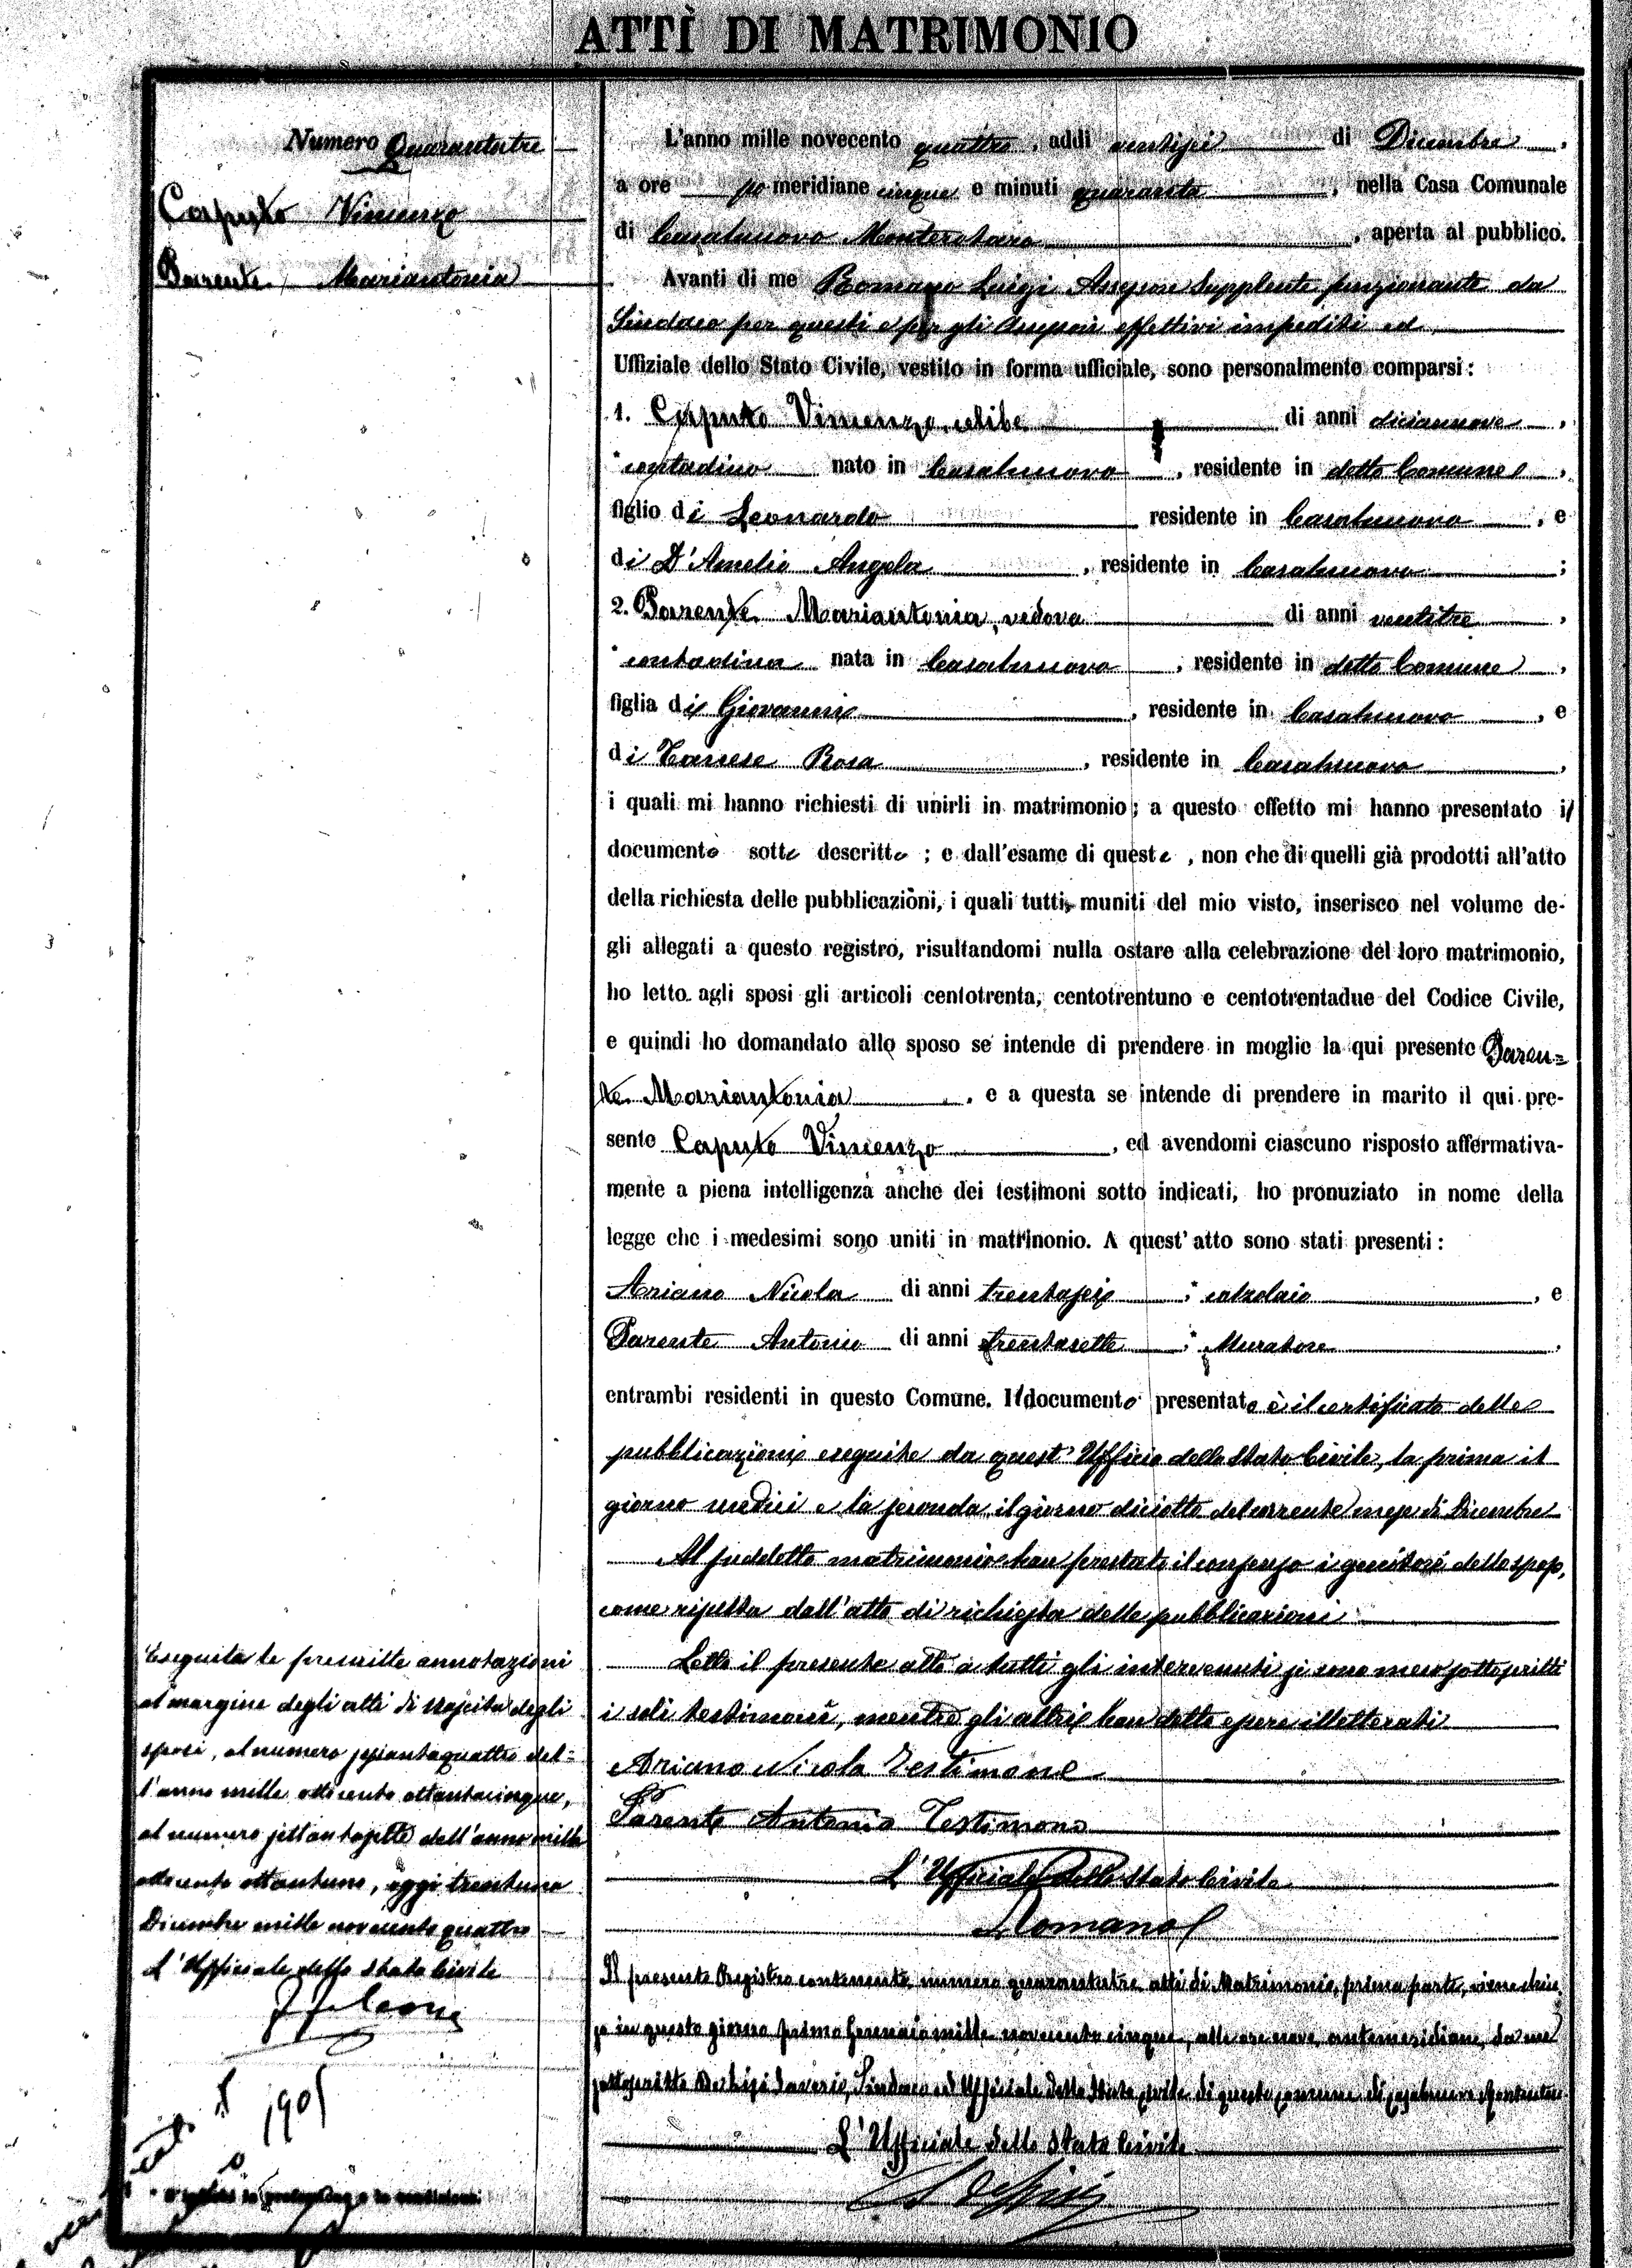 ATTI DI MATRIMONIO
Numero Quarantatre
Caputo Vincenzo
Parente Mariantonia
L'anno mille novecento quattro, addì ventisei di Dicembre,
a ore po meridiane cinque e minuti quaranta, nella Casa Comunale
di Casalnuovo Monterotaro, aperta al pubblico.
Avanti di me Romano Luigi Assessore Supplente funzionante da
Sindaco per questi e per gli Assessori effettivi impediti ed
Uffiziale dello Stato Civile, vestito in forma ufficiale, sono personalmente comparsi:
1. Caputo Vincenzo, celibe di anni diciannove,
contadino nato in Casalnuovo, residente in detto Comune,
figlio di Leonardo residente in Casalnuovo, e
di D'Amelio Angela, residente in Casalnuovo;
2. Parente Mariantonia, vedova di anni ventitre,
contadina nata in Casalnuovo, residente in detto Comune,
figlia di Giovanni, residente in Casalnuovo, e
di Rosa, residente in Casalnuovo,
i quali mi hanno richiesti di unirli in matrimonio; a questo effetto mi hanno presentato il
documento sotto descritto; e dall'esame di questo, non che di quelli già prodotti all'atto
della richiesta delle pubblicazioni, i quali tutti, muniti del mio visto, inserisco nel volume de-
gli allegati a questo registro, risultandomi nulla ostare alla celebrazione del loro matrimonio,
ho letto agli sposi gli articoli centotrenta, centotrentuno e centotrentadue del Codice Civile,
e quindi ho domandato allo sposo se intende di prendere in moglie la qui presente Paren=
te Mariantonia, e a questa se intende di prendere in marito il qui pre-
sente Caputo Vincenzo, ed avendomi ciascuno risposto affermativa-
mente a piena intelligenza anche dei testimoni sotto indicati, ho pronuziato in nome della
legge che i medesimi sono uniti in matrinonio. A quest'atto sono stati presenti:
Ariano Nicola di anni trentasei, calzolaio, e
Parente Antonio di anni trentasette, Muratore,
entrambi residenti in questo Comune. Il documento presentato è il certificato delle
pubblicazioni eseguite da quest'Ufficio dello Stato Civile, la prima il
giorno undici e la seconda il giorno diciotto del corrente mese di Dicembre
Al suddetto matrimonio han prestato il consenso i genitori dello sposo,
come risulta dall'atto di richiesta delle pubblicazioni.
Letto il presente atto a tutti gli intervenuti si sono meco sottoscritti
i soli testimoni, mentre gli altri han detto essere illetterati
Ariano Nicola Testimone
Parente Antonio Testimone
L'Ufficiale dello Stato Civile
Romano
Il presente Registro contenente numero quarantatre atti di Matrimonio, prima parte, viene chiu=
so in questo giorno primo Gennaio mille novecento cinque, alle ore nove antimeridiane, da me
sottoscritto Saverio, Sindaco ed Ufficiale dello Stato Civile di questo comune di Casalnuovo Monterotaro
L'Ufficiale dello Stato Civile
Eseguita le prescritte annotazioni
al margine degli atti di nascita degli
sposi, al numero sessantaquattro del=
l'anno mille ottocento ottantacinque,
al numero settantasette dell'anno mille
ottocento ottantuno, oggi trentuno
Dicembre mille novecento quattro
L'Ufficiale dello Stato Civile
1905